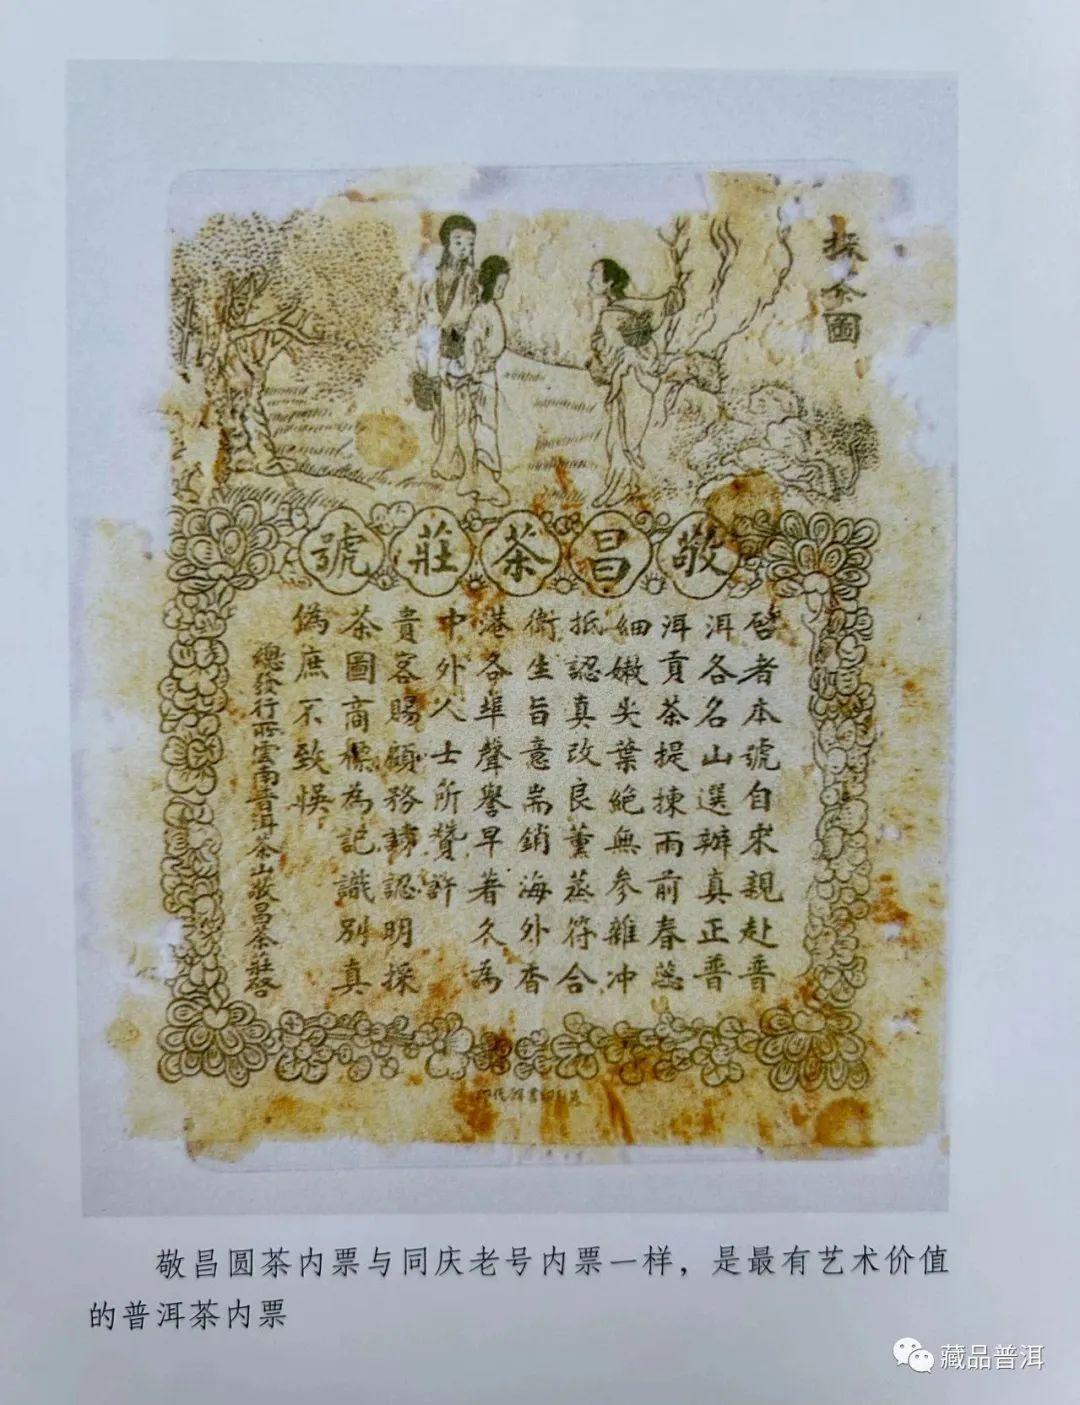 採茶圖
敬昌茶莊號
啓者本號自來親赴普
洱各名山選辦真正普
洱貢茶提揀雨前春蕊
細嫩尖葉絕無參雜冲
抵認真改良薰蒸符合
衛生旨意耑銷海外香
港各埠聲譽早著久為
中外人士所贊許
貴客賜顧務請認明採
茶圖商標為記識別真
偽庶不致悞
總發行所雲南普洱茶山敬昌茶莊啓
敬昌圆茶内票与同庆老号内票一样，是最有艺术价值
的普洱茶内票
藏品普洱